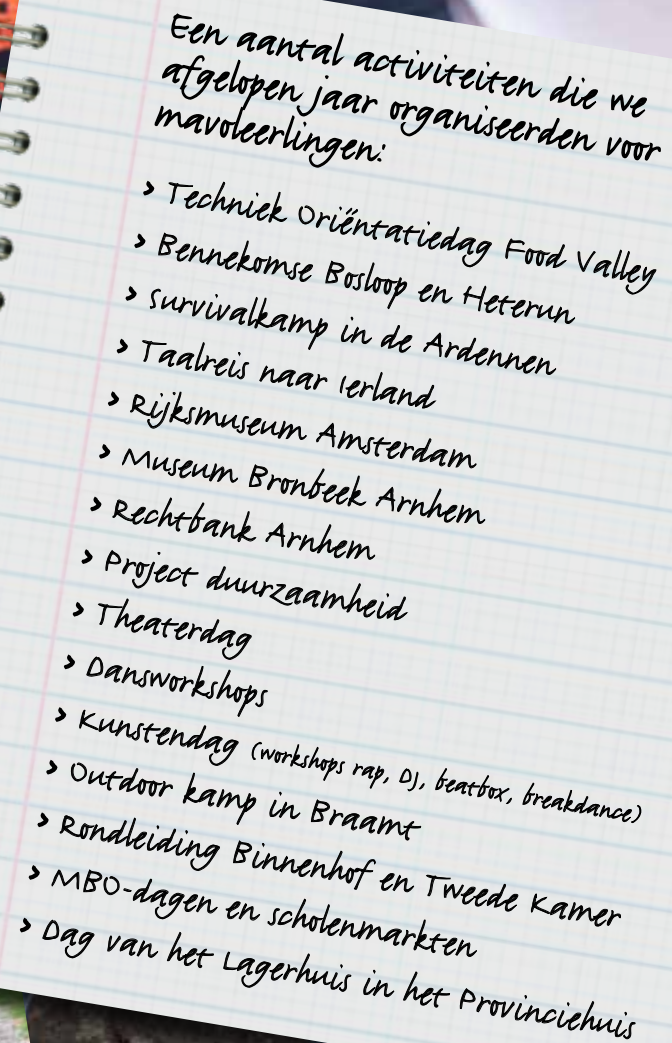 Een aantal activiteiten die we
afgelopen jaar organiseerden voor
mavoleerlingen:
> Techniek Oriëntatiedag Food Valley
> Bennekomse Bosloop en Heterun
> Survivalkamp in de Ardennen
> Taalreis naar Ierland
> Rijksmuseum Amsterdam
> Museum Bronbeek Arnhem
> Rechtbank Arnhem
> Project duurzaamheid
> Theaterdag
> Dansworkshops
> Kunstendag (workshops rap, DJ, beatbox, breakdance)
> Outdoor kamp in Braamt
> Rondleiding Binnenhof en Tweede Kamer
> MBO-dagen en scholenmarkten
> Dag van het Lagerhuis in het Provinciehuis